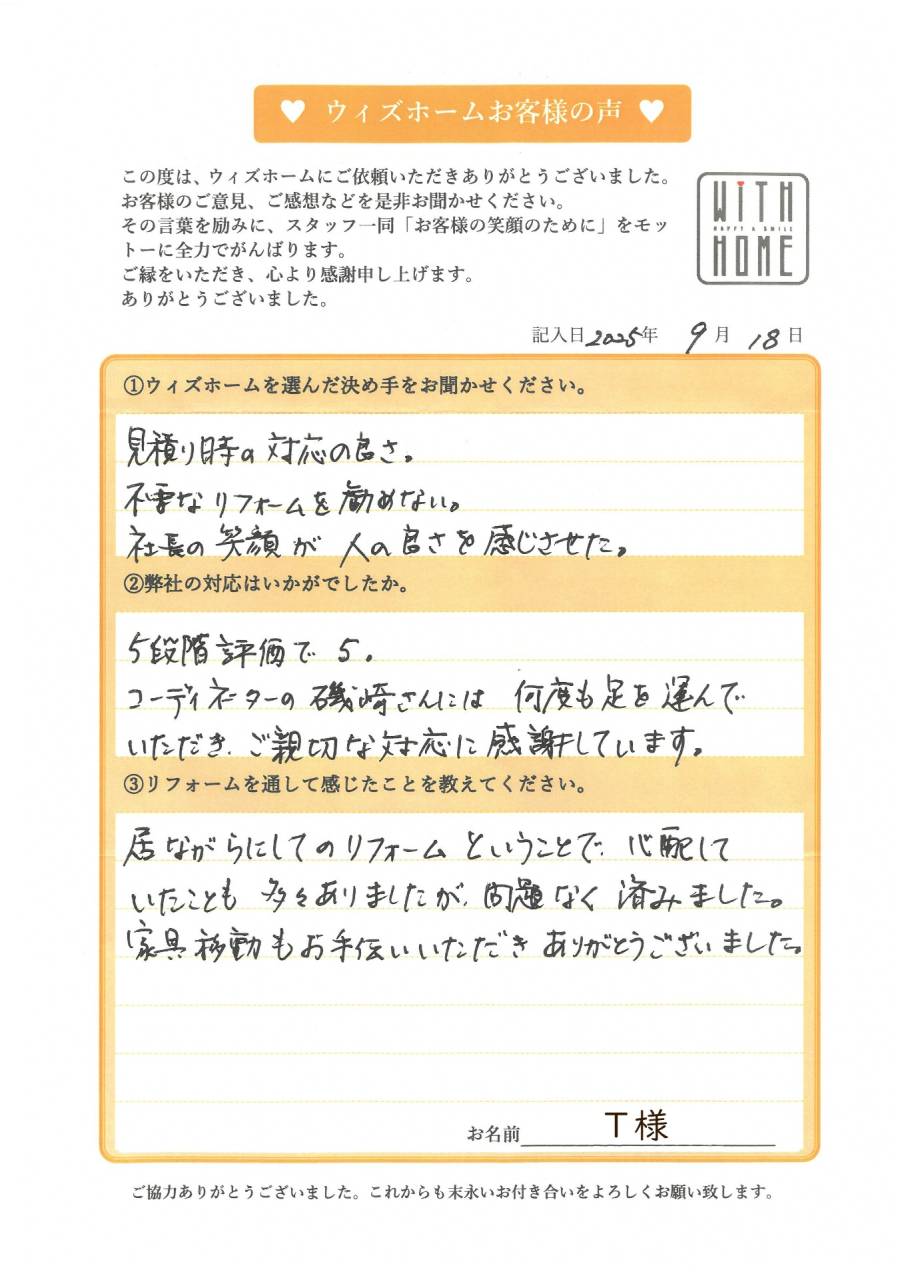 ♥ ウィズホームお客様の声 ♥
この度は、ウィズホームにご依頼いただきありがとうございました。
お客様のご意見、ご感想などを是非お聞かせください。
その言葉を励みに、スタッフ一同「お客様の笑顔のために」をモッ
トーに全力でがんばります。
ご縁をいただき、心より感謝申し上げます。
ありがとうございました。
WiTH
HAPPY & SMILE
HOME
記入日2025年 9月 18日
①ウィズホームを選んだ決め手をお聞かせください。
見積り時の対応の良さ。
不要なリフォームを勧めない。
社長の笑顔が人の良さを感じさせた。
②弊社の対応はいかがでしたか。
5段階評価で5。
コーディネーターの磯崎さんには何度も足を運んで
いただき、ご親切な対応に感謝しています。
③リフォームを通して感じたことを教えてください。
居ながらにしてのリフォームということで、心配して
いたことも多々ありましたが、問題なく済みました。
家具移動もお手伝いいただきありがとうございました。
お名前 T様
ご協力ありがとうございました。これからも末永いお付き合いをよろしくお願い致します。